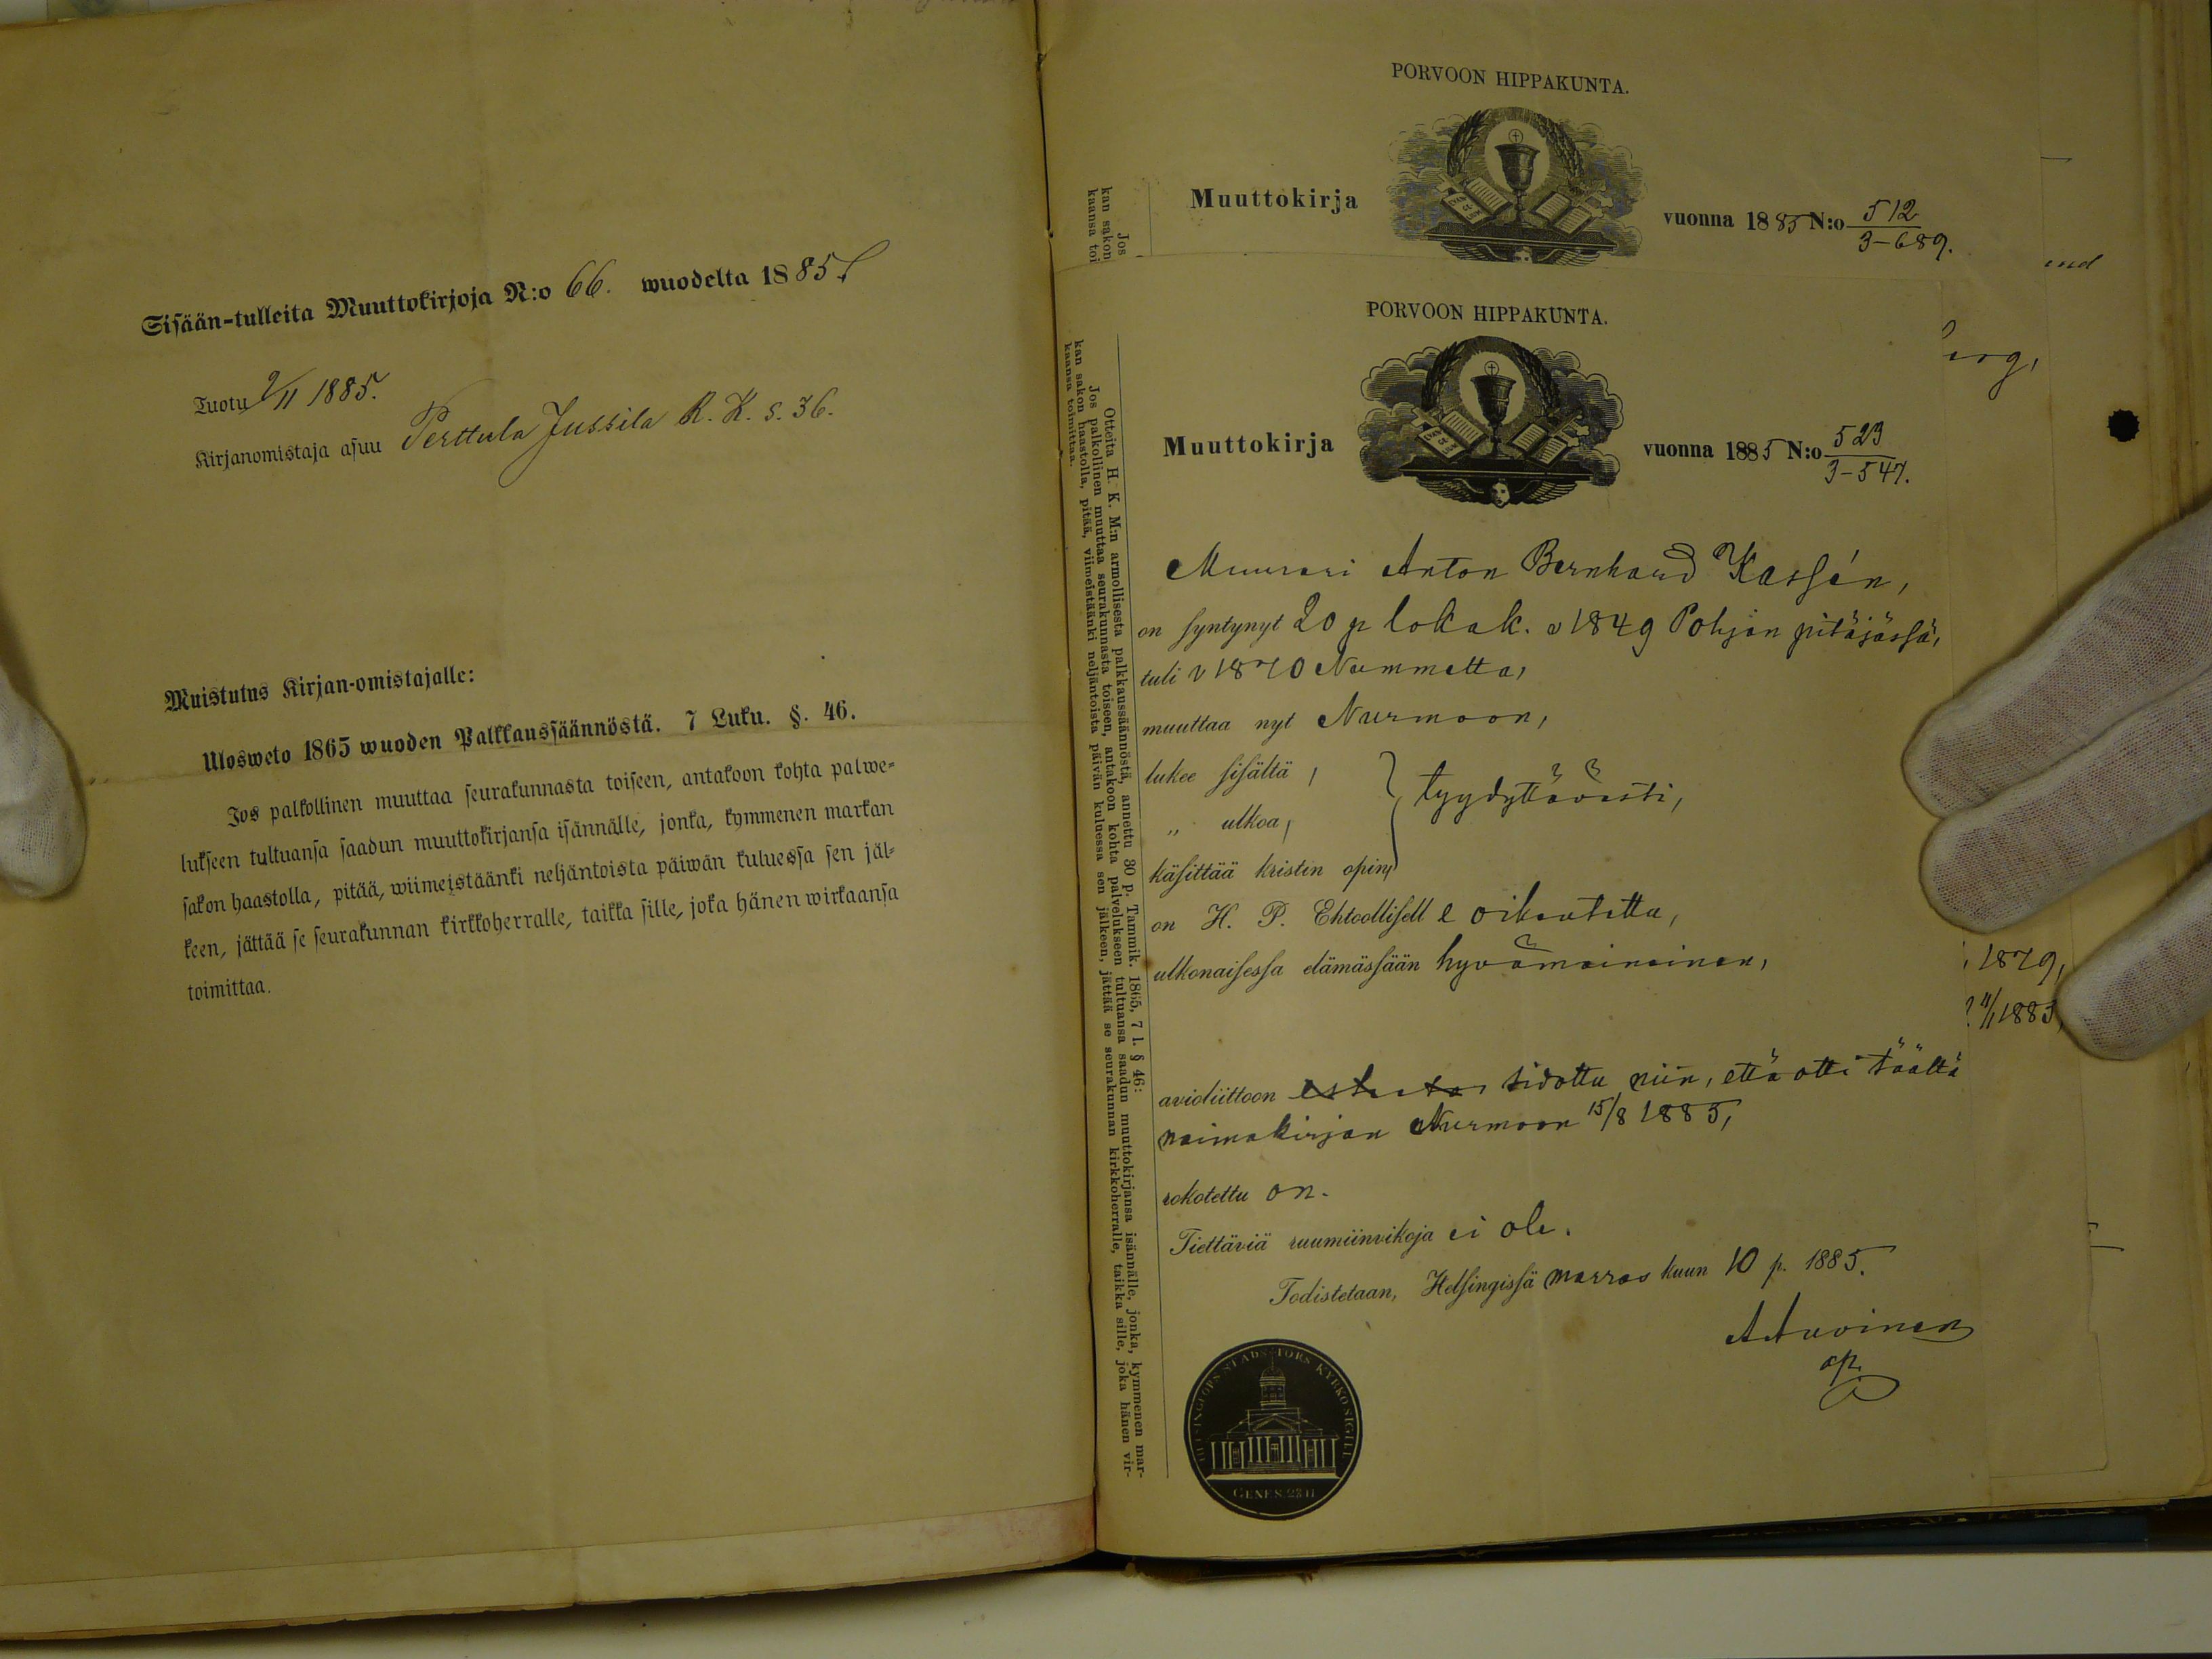 Sisään-tulleita Muuttokirjoja N:o 66. wuodelta 1885.
Tuotu 9/11 1885.
Kirjanomistaja asuu Perttula Jussila R. K. s. 36.
Muistutus Kirjan-omistajalle:
Ulosweto 1865 wuoden Palkkaussäännöstä. 7 Luku. §. 46.
Jos palkollinen muuttaa seurakunnasta toiseen, antakoon kohta palwe-
lukseen tultuansa saadun muuttokirjansa isännälle, jonka, kymmenen markan
sakon haastolla, pitää, wiimeistäänki neljäntoista päiwän kuluessa sen jäl-
keen, jättää se seurakunnan kirkkoherralle, taikka sille, joka hänen wirkaansa
toimittaa.
PORVOON HIPPAKUNTA.
Muuttokirja vuonna 1885 N:o 512
3-689.
Jos
kan sakon
kaansa toi
PORVOON HIPPAKUNTA.
Muuttokirja vuonna 1885 N:o 523
3-547.
Otteita H. K. M:n armollisesta palkkaussäännöstä, annettu 30 p. Tammik. 1865, 7 l. § 46:
Jos palkollinen muuttaa seurakunnasta toiseen, antakoon kohta palvelukseen tultuansa saadun muuttokirjansa isännälle, jonka, kymmenen mar-
kan sakon haastolla, pitää, viimeistäänki neljäntoista päivän kuluessa sen jälkeen, jättää se seurakunnan kirkkoherralle, taikka sille, joka hänen vir-
kaansa toimittaa.
Muurari Anton Bernhard Kassén,
on syntynyt 20 p lokak. v 1849 Pohjan pitäjässä,
tuli v 1870 Nummelta,
muuttaa nyt Nurmoon,
lukee sisältä, tyydyttävästi,
„ ulkoa,
käsittää kristin opin,
on H. P. Ehtoollisell e oikeutettu,
ulkonaisessa elämässään hyvämaineinen,
avioliittoon esteetön sidottu niin, että otti täältä
naimakirjan Nurmoon 15/8 1885,
rokotettu on.
Tiettäviä ruumiinvikoja ei ole.
Todistetaan, Helsingissä marras kuun 10 p. 1885.
A Auvinen
ap.
HELSINGFORS STADS TORS KYRKO SIGILL
GENES. 28 17
1879,
11/1 1885,